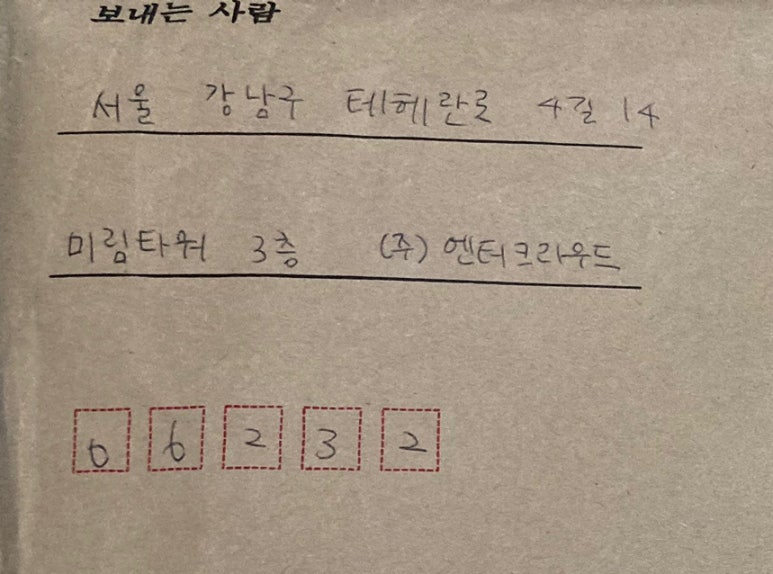 보내는 사람
서울 강남구 테헤란로 4길 14
미림타워 3층 (주)엔터크라우드
06232